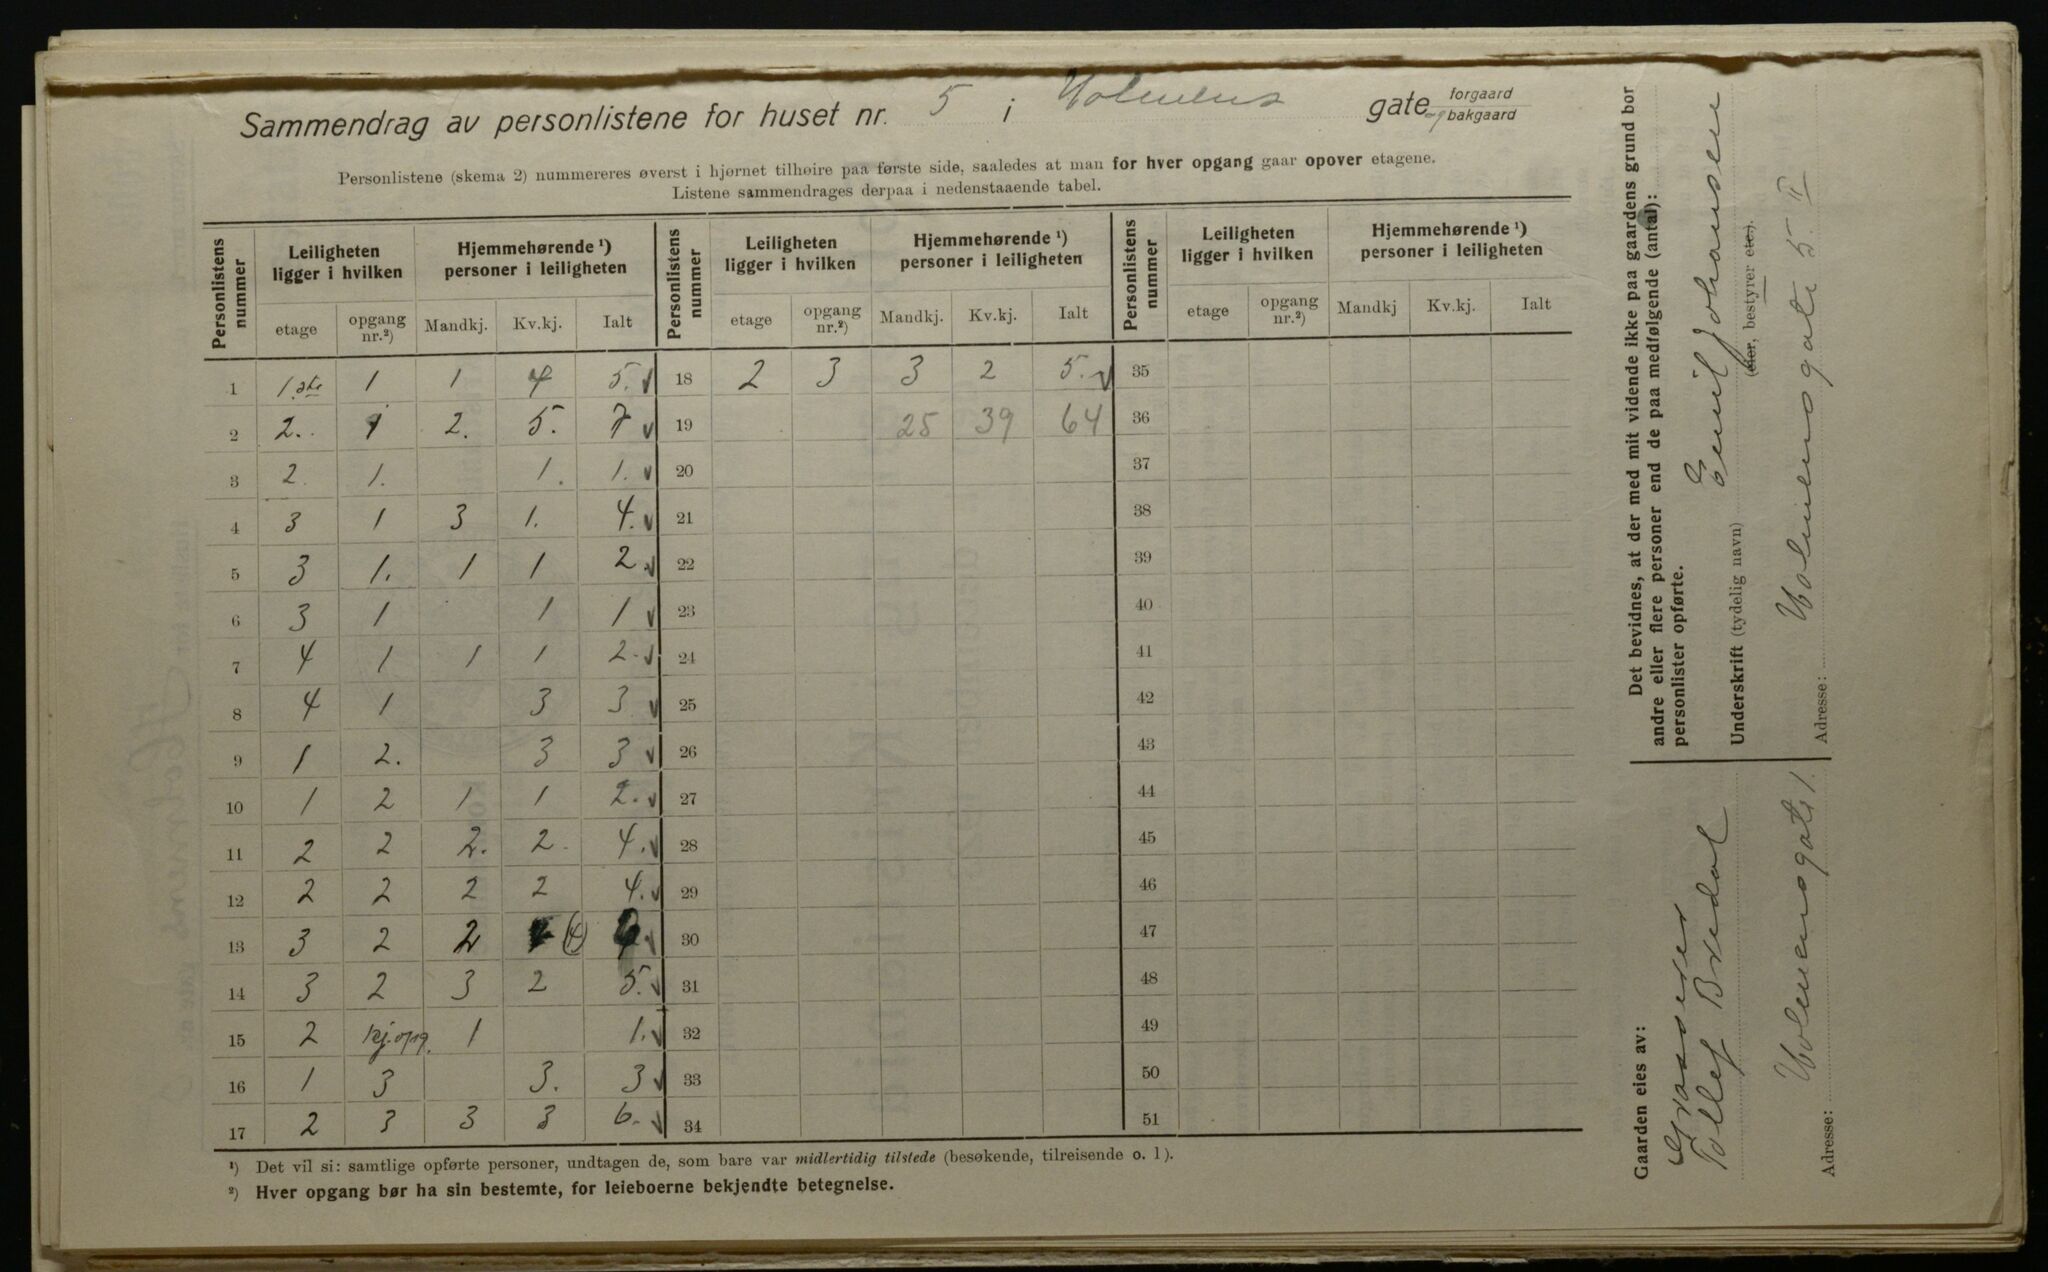 Sammendrag av personlistene for huset nr. 5 i Holmens gate forgaard og bakgaard
Personlistene (skema 2) nummereres øverst i hjørnet tilhøire paa første side, saaledes at man for hver opgang gaar opover etagene.
Listene sammendrages derpaa i nedenstaaende tabel.
Personlistens nummer | Leiligheten ligger i hvilken | Hjemmehørende ¹) personer i leiligheten | Personlistens nummer | Leiligheten ligger i hvilken | Hjemmehørende ¹) personer i leiligheten | Personlistens nummer | Leiligheten ligger i hvilken | Hjemmehørende ¹) personer i leiligheten
etage | opgang nr.²) | Mandkj. | Kv.kj. | Ialt | etage | opgang nr.²) | Mandkj. | Kv.kj. | Ialt | etage | opgang nr.²) | Mandkj | Kv.kj. | Ialt
1 | 1.ste | 1 | 1 | 4 | 5. | 18 | 2 | 3 | 3 | 2 | 5. | 35
2 | 2. | 1 | 2. | 5. | 7 | 19 | 25 | 39 | 64 | 36
3 | 2. | 1. | 1. | 1. | 20 | 37
4 | 3 | 1 | 3 | 1. | 4. | 21 | 38
5 | 3 | 1. | 1 | 1 | 2. | 22 | 39
6 | 3 | 1 | 1 | 1 | 23 | 40
7 | 4 | 1 | 1 | 1 | 2. | 24 | 41
8 | 4 | 1 | 3 | 3 | 25 | 42
9 | 1 | 2. | 3 | 3 | 26 | 43
10 | 1 | 2 | 1 | 1 | 2. | 27 | 44
11 | 2 | 2 | 2. | 2. | 4. | 28 | 45
12 | 2 | 2 | 2 | 2 | 4. | 29 | 46
13 | 3 | 2 | 2 | (4) | 30 | 47
14 | 3 | 2 | 3 | 2 | 5. | 31 | 48
15 | 2 | Kj.opg. | 1 | 1. | 32 | 49
16 | 1 | 3 | 3. | 3 | 33 | 50
17 | 2 | 3 | 3 | 3 | 6. | 34 | 51
¹) Det vil si: samtlige opførte personer, undtagen de, som bare var midlertidig tilstede (besøkende, tilreisende o. l).
²) Hver opgang bør ha sin bestemte, for leieboerne bekjendte betegnelse.
Det bevidnes, at der med mit vidende ikke paa gaardens grund bor
andre eller flere personer end de paa medfølgende (antal):
personlister opførte.
Emil Johansen
Underskrift (tydelig navn)
(eier, bestyrer etc.).
Holmensgate 5. II
Adresse:
Gaarden eies av:
Grosserer
Tollef Bredal
Holmensgate 1.
Adresse: